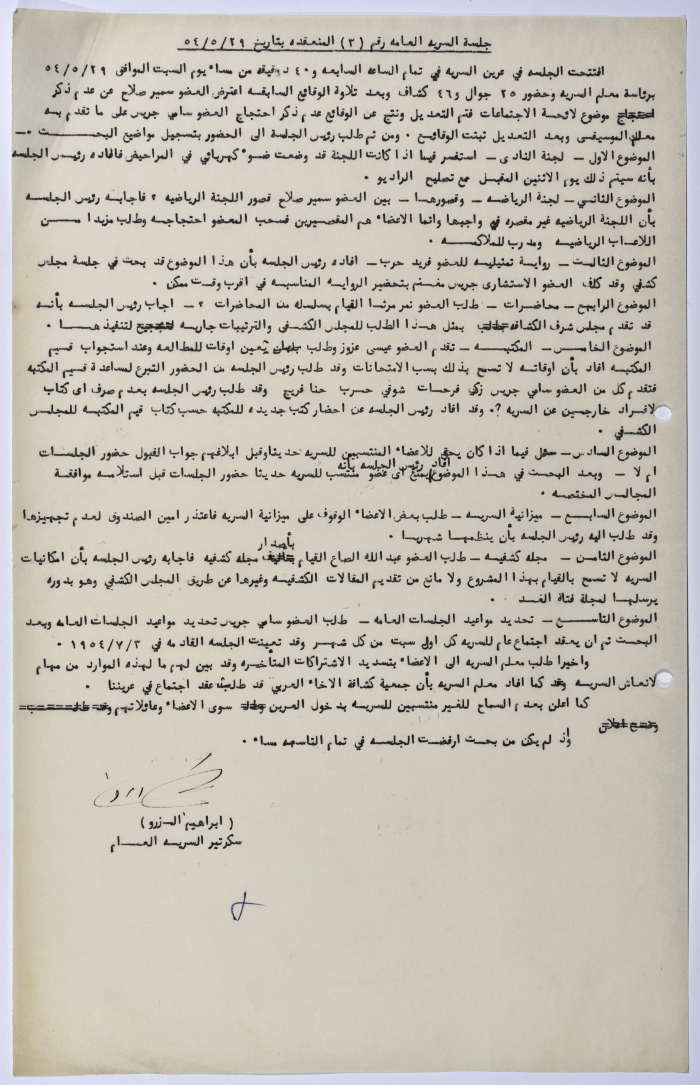 جلسة السريه العامه رقم (٣) المنعقده بتاريخ ٥٤/٥/٢٩
افتتحت الجلسه في عرين السريه في تمام الساعه السابعه و٤٠ دقيقه من مساء يوم السبت الموافق ٥٤/٥/٢٩
برئاسة معلم السريه وحضور ٢٥ جوال و٤٦ كشاف وبعد تلاوة الوقائع السابقه اعترض العضو سمير صلاح عن عدم ذكر
احتجاج موضوع لائحة الاجتماعات فتم التعديل ونتج عن الوقائع عدم ذكر احتجاج العضو سامي جريس على ما تقدم به
معلم الموسيقى وبعد التعديل ثبتت الوقائع ٠ ومن ثم طلب رئيس الجلسة الى الحضور بتسجيل مواضيع البحث ٠ــ
الموضوع الاول ــ لجنة النادى ــ استفسر فيما اذا كانت اللجنة قد وضعت ضوء كهربائي في المراحيض فافاده رئيس الجلسه
بأنه سيتم ذلك يوم الاثنين المقبل مع تصليح الراديو ٠
الموضوع الثاني ــ لجنة الرياضه ــ وقصورها ــ بين العضو سمير صلاح قصور اللجنة الرياضيه ؟ فاجابه رئيس الجلسه
بأن اللجنة الرياضيه غير مقصره في واجبها وانما الاعضاء هم المقصرين فسحب العضو احتجاجه وطلب مزيدا من
اللاعاب الرياضيه ومدرب للملاكمه ٠
الموضوع الثالث ــ رواية تمثيليه للعضو فريد حرب ــ افاده رئيس الجلسه بأن هذا الموضوع قد بحث في جلسة مجلس
كشفي وقد كلف العضو الاستشارى جريس مغنم بتحضير الروايه المناسبه في اقرب وقت ممكن ٠
الموضوع الرابع ــ محاضرات ــ طلب العضو نمر مرتما القيام بسلسله من المحاضرات ؟ ــ اجاب رئيس الجلسه بأنه
قد تقدم مجلس شرف الكشافه بمثل هذا الطلب للمجلس الكشفي والترتيبات جاريه لتنفيذها ٠
الموضوع الخامس ــ المكتبه ــ تقدم العضو عيسى عزوز وطلب تعين اوقات للمطالعه وعند استجواب قسيم
المكتبه افاد بأن اوقاته لا تسمح بذلك بسب الامتحانات وقد طلب رئيس الجلسه من الحضور التبرع لمساعدة قسيم المكتبه
فتقدم كل من العضو سامي جريس زكي فرحات شوقي حرب حنا فريج وقد طلب رئيس الجلسه بعدم صرف اى كتاب
لافراد خارجين عن السريه ؟٠ وقد افاد رئيس الجلسه عن احضار كتب جديده للمكتبه حسب كتاب قيم المكتبه للمجلس
الكشفي ٠
الموضوع السادس ــ سئل فيما اذا كان يحق للاعضاء المنتسبين للسريه حديثا وقبل ابلاغهم جواب القبول حضور الجلسات
ام لا ــ وبعد البحث في هذا الموضوع افاد رئيس الجلسه بأنه يمنع اى عضو منتسب للسريه حديثا حضور الجلسات قبل استلامه موافقة
المجالس المختصه ٠
الموضوع السابع ــ ميزانية السريه ــ طلب بعض الاعضاء الوقوف على ميزانية السريه فاعتذر امين الصندوق لعدم تجهيزها
وقد طلب اليه رئيس الجلسه بأن ينظمها شهريا ٠
الموضوع الثامن ــ مجله كشفيه ــ طلب العضو عبد الله الصاع القيام بأصدار مجله كشفيه فاجابه رئيس الجلسه بأن امكانيات
السريه لا تسمح بالقيام بهذا المشروع ولا مانع من تقديم المقالات الكشفيه وغيرها عن طريق المجلس الكشفي وهو بدوره
يرسلها لمجلة فتاة الغد ٠
الموضوع التاسع ــ تحديد مواعيد الجلسات العامه ــ طلب العضو سامي جريس تحديد مواعيد الجلسات العامه وبعد
البحث تم ان يعقد اجتماع عام للسريه كل اول سبت من كل شهر وقد تعينت الجلسه القادمه في ١٩٥٤/٧/٣ ٠
واخيرا طلب معلم السريه الى الاعضاء بتسديد الاشتراكات المتأخره وقد بين لهم ما لهذه الموارد من مهام
لانعاش السريه كما افاد معلم السريه بأن جمعية كشافة الاخاء العربي قد طلبت عقد اجتماع في عريننا ٠
كما اعلن بعدم السماح للغير منتسبين للسريه بدخول العرين سوى الاعضاء وعائلاتهم
واذ لم يكن من بحث ارفضت الجلسه في تمام التاسعه مساء ٠
(ابراهيم المزرو)
سكرتير السريه العام